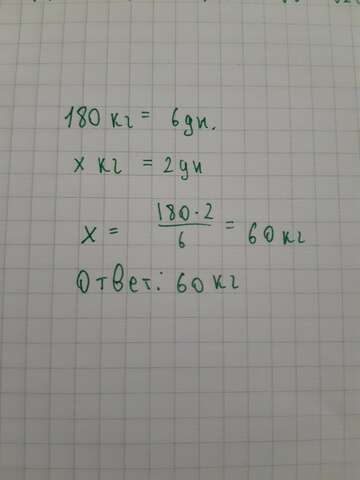 180 кг = 6 дн.
х кг = 2 дн
х = 180·2/6 = 60 кг
Ответ: 60 кг